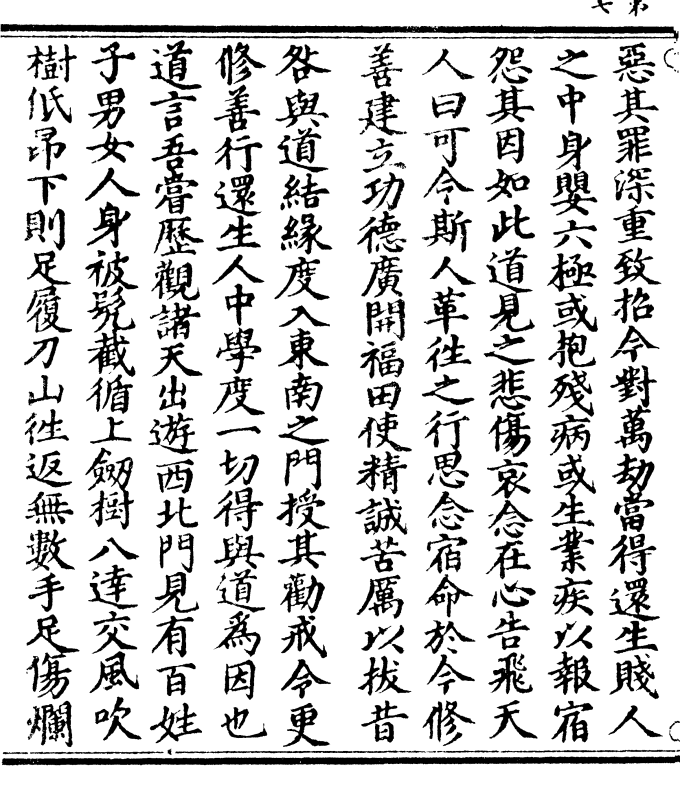 惡其罪深重致招今對萬劫當得還生賤人
之中身嬰六極或抱殘病或生業疾以報宿
怨其因如此道見之悲傷哀念在心告飛天
人曰可令斯人革徃之行思念宿命於今修
善建立功德廣開福田使精誠苦厲以拔昔
咎與道結緣度入東南之門授其勸戒令更
修善行還生人中學度一切得與道為因也
道言吾嘗歷觀諸天出遊西北門見有百姓
子男女人身被髡截循上劒樹八達交風吹
樹低昂下則足履刀山徃返無數手足傷爛